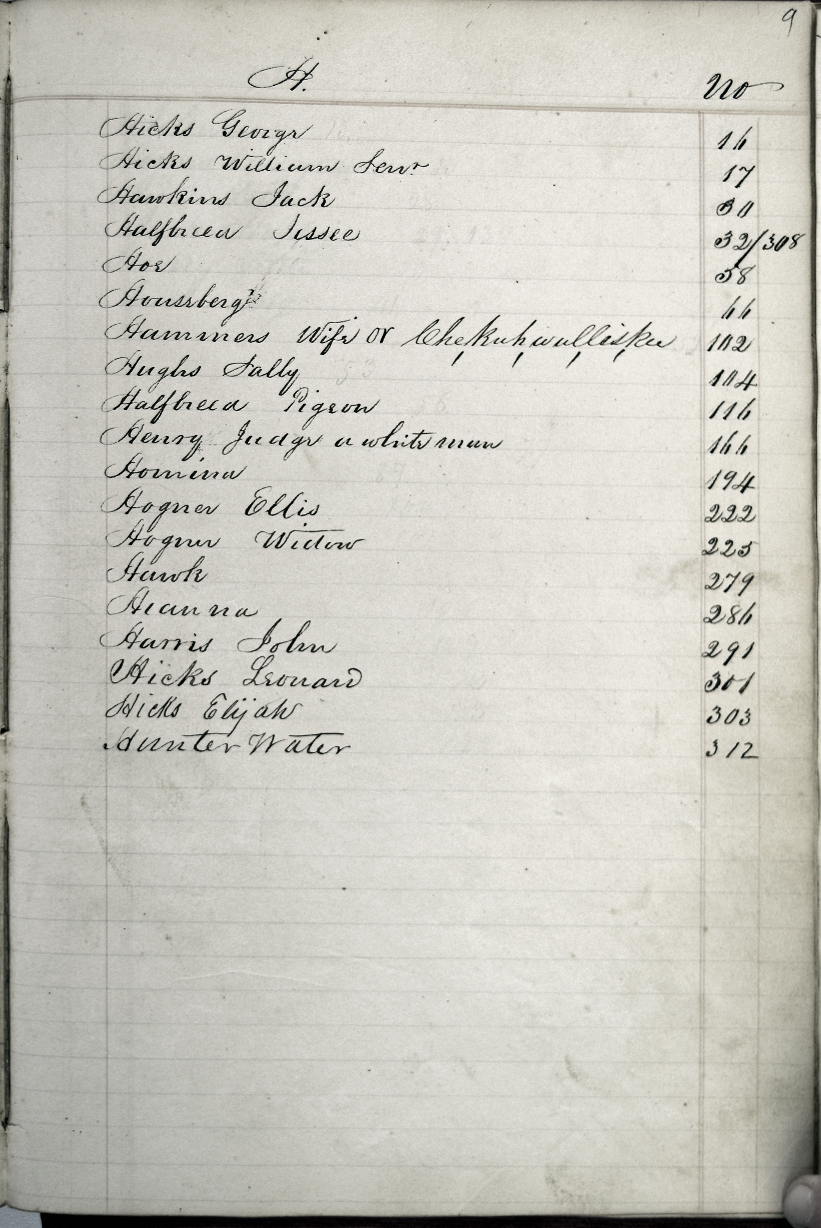 9
H. No
Hicks George 16
Hicks William Senr 17
Hawkins Jack 30
Halfbreed Jessee 32/308
Hoe 58
Housebergs 66
Hammers Wife or Che,kuh,wul,lis,kee 102
Hughs Sally 104
Halfbreed Pigeon 116
Henry Judge a white man 166
Homina 194
Hogner Ellis 222
Hogner Widow 225
Hawk 279
Heanna 286
Harris John 291
Hicks Leonard 301
Hicks Elijah 303
Hunter Water 312